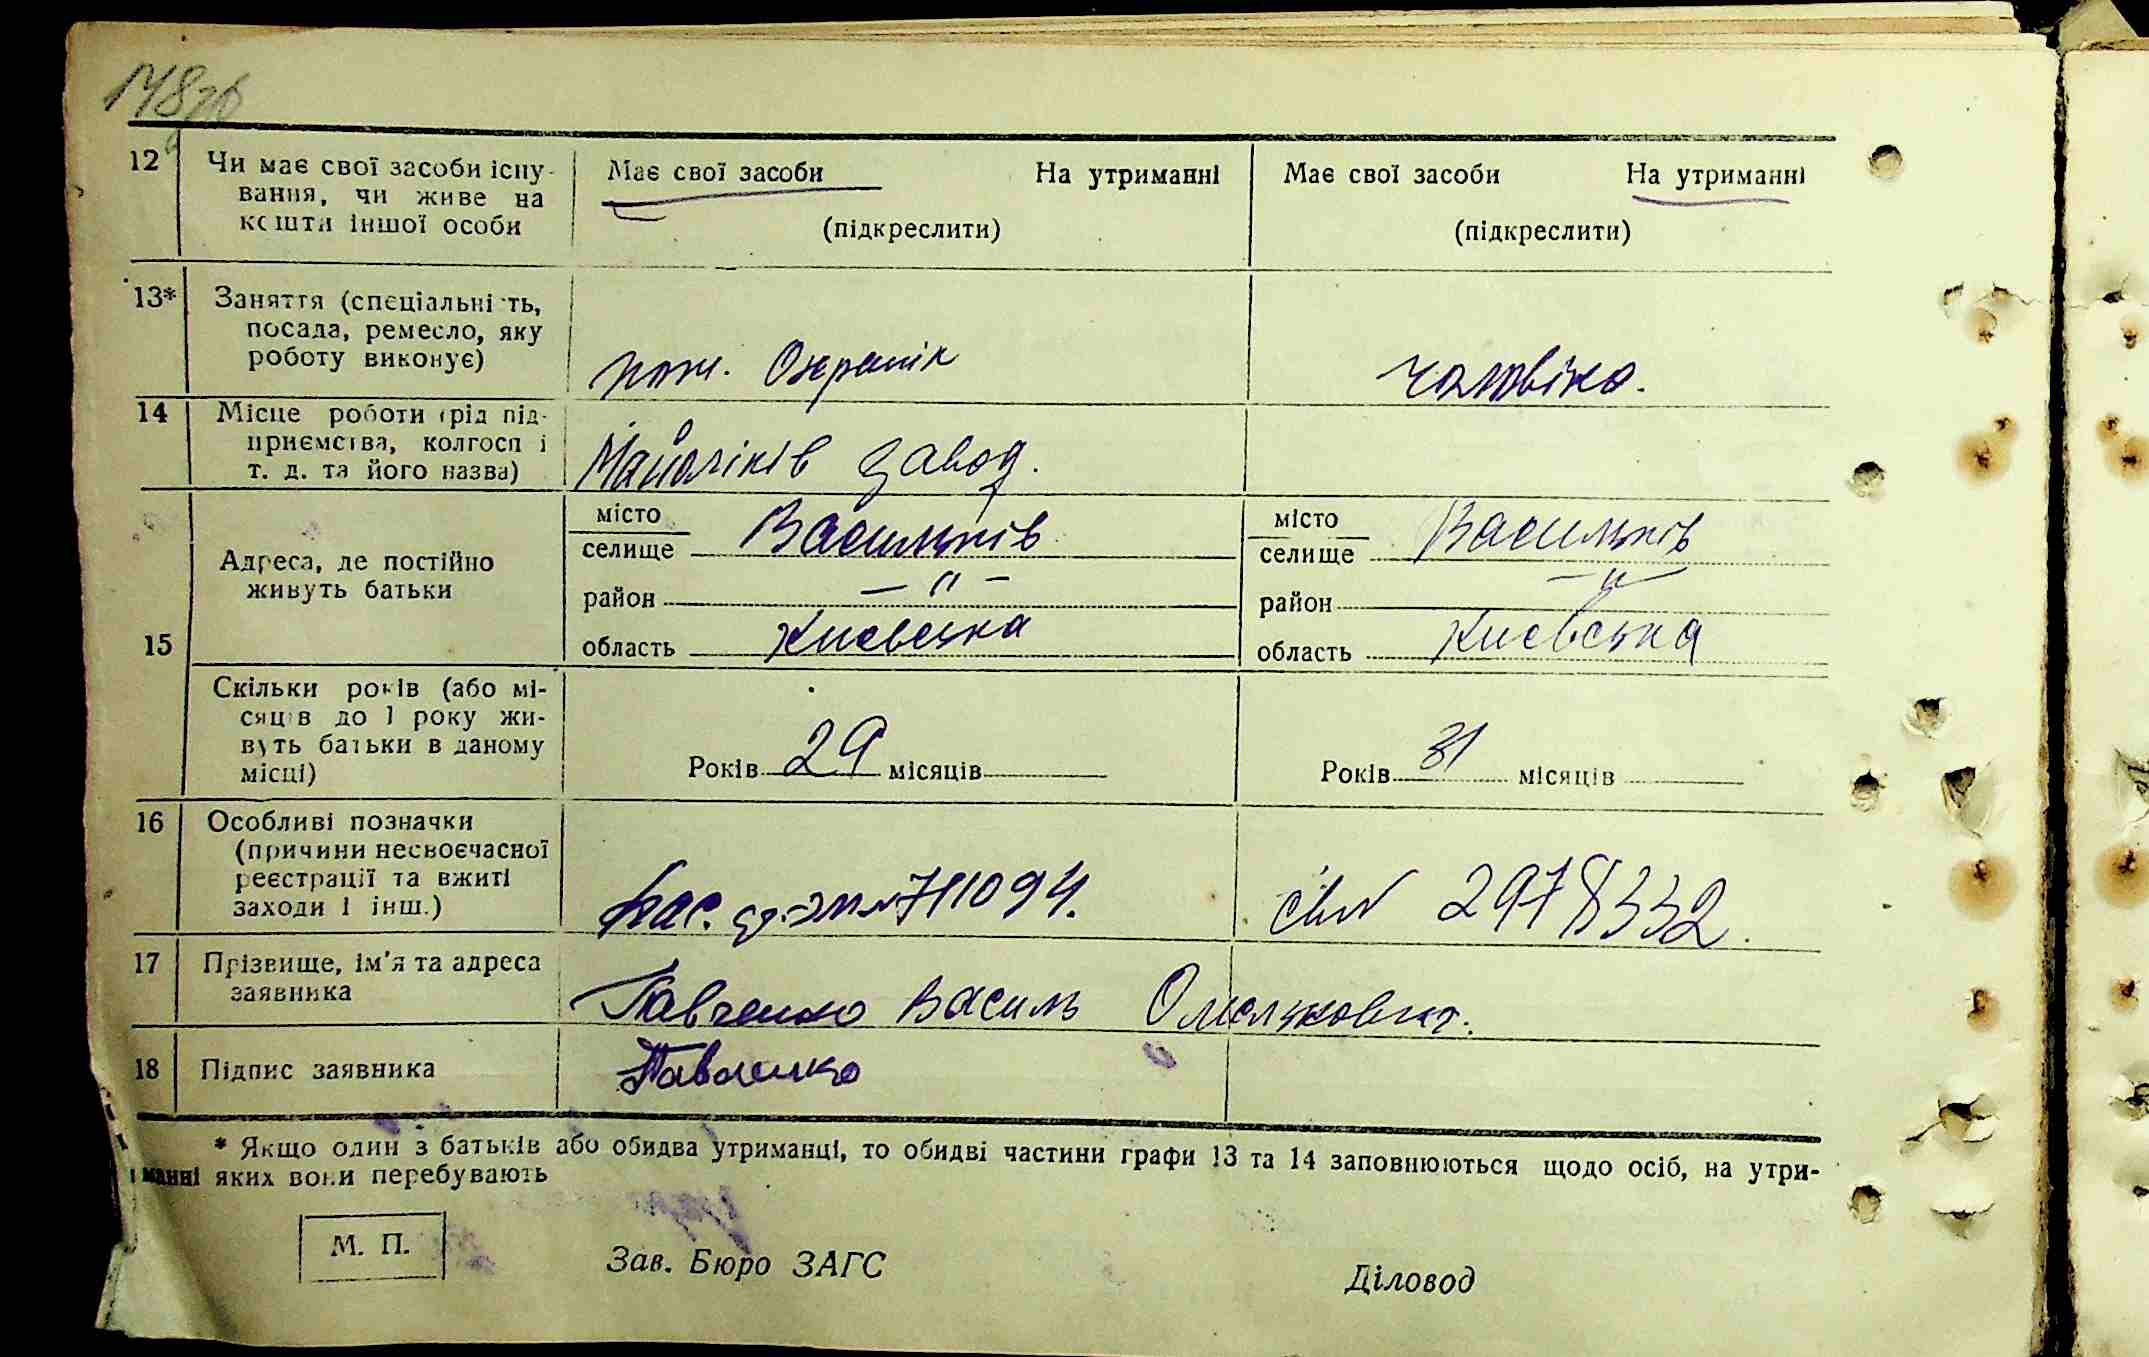 148зв
12 Чи має свої засоби існу- Має свої засоби На утриманні Має свої засоби На утриманні
вання, чи живе на
кошти іншої особи (підкреслити) (підкреслити)
13* Заняття (спеціальність,
посада, ремесло, яку
роботу виконує) пож. Охранік чоловіка.
14 Місце роботи (рід під-
приємства, колгосп і
т. д. та його назва) Майоліків завод.
15 Адреса, де постійно
живуть батьки
місто Васильків місто Васильків
селище селище
район — " — район — " —
область Києвська область Києвська
Скільки років (або мі-
сяців до 1 року жи-
вуть батьки в даному
місці) Років 29 місяців Років 31 місяців
16 Особливі позначки
(причини несвоєчасної
реєстрації та вжиті
заходи і інш.) 711094. 2978332.
17 Прізвище, ім'я та адреса
заявника Павленко Василь Омелькович.
18 Підпис заявника Павленко
* Якщо один з батьків або обидва утриманці, то обидві частини графи 13 та 14 заповнюються щодо осіб, на утри-
манні яких вони перебувають
М. П. Зав. Бюро ЗАГС Діловод